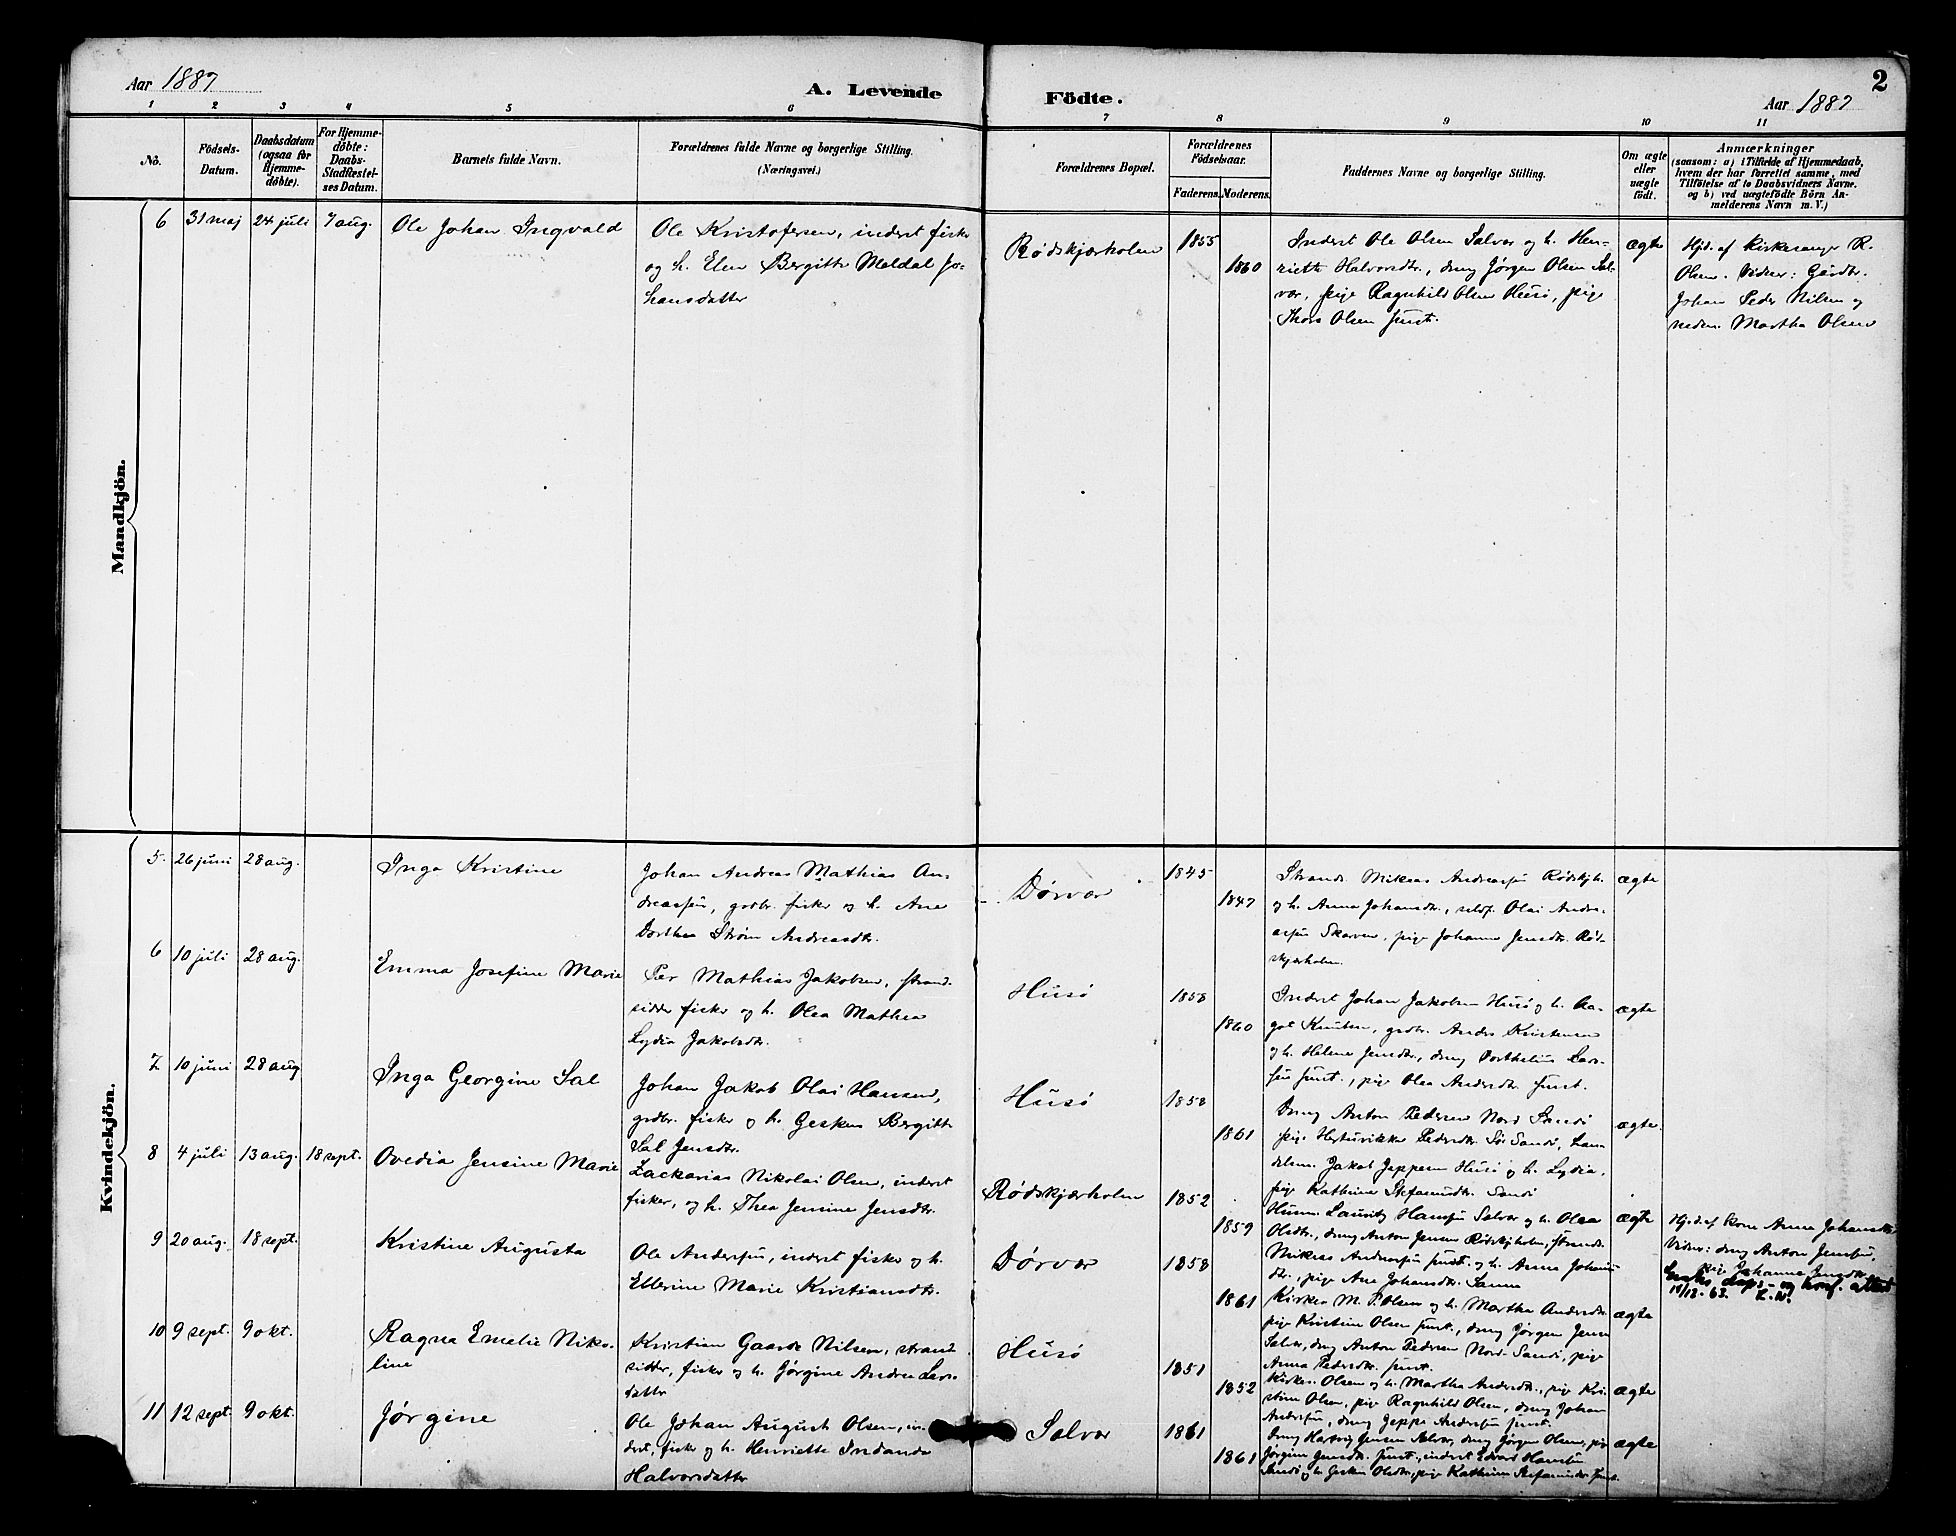 Aar 1887
A. Levende
Födte.
Aar 1887
2
1 2 3 4 5 6 7 8 9 10 11
No.
Födsels-
Datum.
Daabsdatum
(ogsaa for
Hjemme-
döbte).
For Hjemme-
döbte:
Daabs-
Stadfæstel-
ses Datum.
Barnets fulde Navn.
Forældrenes fulde Navne og borgerlige Stilling.
(Næringsvei.)
Forældrenes Bopæl.
Forældrenes
Födselsaar.
Faderens. Moderens.
Faddernes Navne og borgerlige Stilling.
Om ægte
eller
uægte
födt.
Anmærkninger
(saasom: a) i Tilfælde af Hjemmedaab,
hvem der har forrettet samme, med
Tilföielse af to Daabsvidners Navne.
og b) ved uægtefödte Börn An-
melderens Navn m. V.)
Mandkjön.
6 31 maj 24 juli 7 aug. Ole Johan Ingvald
Ole Kristofersen, inderst fisker
og h. Elen Bergitte Meldal Jo-
hansdatter
Rødskjærholm
1855
1860
Inderst Ole Olsen Salvær og h. Hen-
riette Halvorsdtr., dreng Jørgen Olsen Sal-
vær, pige Ragnhild Olsen Husø, pige
Thora Olsen smst.
ægte
Hjd. af Kirkesanger R.
Olsen. Vidner: Gårdbr.
Johan Peder Nilsen og
Martha Olsen
Kvindekjön.
5. 26 juni 28 aug. Inga Kristine
Johan Andreas Mathias An-
dreassen, grdbr. fisker og h. Ane
Dorthea Strøm Andreasdtr.
Dørvær
1845
1847
Strands. Mikras Andreassen Rødskjh.
og h. Anna Johansdtr., Olai Andre-
assen Skarven, pige Johanna Jensdtr. Rød-
skjærholm.
ægte
6 10 juli 28 aug. Emma Josefine Marie
Per Mathias Jakobsen, strand-
sidder fisker og h. Olea Mathea
Lydia Jakobsdtr.
Husø
1858
1860
Inderst Johan Jakobsen Husø og h. Aa-
got Knutsen, grdbr. Anders Kristensen
og h. Helene Jensdtr., dreng Dorthelius Lar-
sen smst., pige Olea Andersdtr. smst.
ægte
7 10 juni 28 aug Inga Georgine Sal
Johan Jakob Olai Hansen,
grdbr. fisker og h. Gesken Bergitte
Sal Jensdtr.
Husø
1858
1861
Dreng Anton Pedersen Nord Sandø
pige Pedersdtr. Sør Sandø, Lan-
delsm. Jakob Jeppesen Husø og h. Lydia,
pige Kathrine Stefanusdtr. Sandø
ægte.
8 4 juli 13 aug. 18 sept. Ovedia Jensine Marie
Zackarias Nikolai Olsen, inderst
fisker, og h. Thea Jensine Jensdtr.
Rødskjærholm
1852
1859
Husm. Lauritz Hansen Salvær og h. Olea
Olsdtr., dreng Anton Jensen Rødskjholm, strands.
Mikras Andreassen smst. og h. Anna Johans
dtr., pige Ane Johansdtr. Sanna
ægte
Hjd. af Kone Anna Johansdtr.
Vidner: dreng Anton Jensen,
pige Johanna Jensdtr.
dåps- og konf. attest
15/12-63. L.N.
9 20 aug. 18 sept. Kristine Augusta
Ole Andersen, inderst fisker og h.
Ellerine Marie Kristiansdtr.
Dørvær
1858
1861
Kirkes. M. P. Olsen og h. Martha Andersdtr.
pige Kristine Olsen smst., dreng Jørgen Jensen
Salvær, dreng Anton Pedersen Nord-Sandø, pige
Anna Pedersdtr. smst.
ægte
10 9 sept. 9 okt. Ragna Emelie Niko-
line
Kristian Gaarde Nilsen, strand-
sidder, fisker og h. Jørgine Andrea Lars-
datter
Husø
1851
1852
Kirkes. Olsen og h. Martha Andersdtr., pige Kri-
stine Olsen, pige Ragnhild Olsen, dreng Johan
Andersen, dreng Jeppe Andersen smst.
ægte
11 12 sept. 9 okt. Jørgine
Ole Johan August Olsen, in-
derst, fisker og h. Henriette Indianda
Halvorsdatter
Salvær
1861
1861
Dreng Hartvig Jensen Salvær, dreng Jørgen Olsen, pige
Jørgine Jensdtr. smst., inderst Edvard Hansen
Sandø og h. Gesken Olsdtr., pige Kathrine Stefanusdtr. smst.
ægte